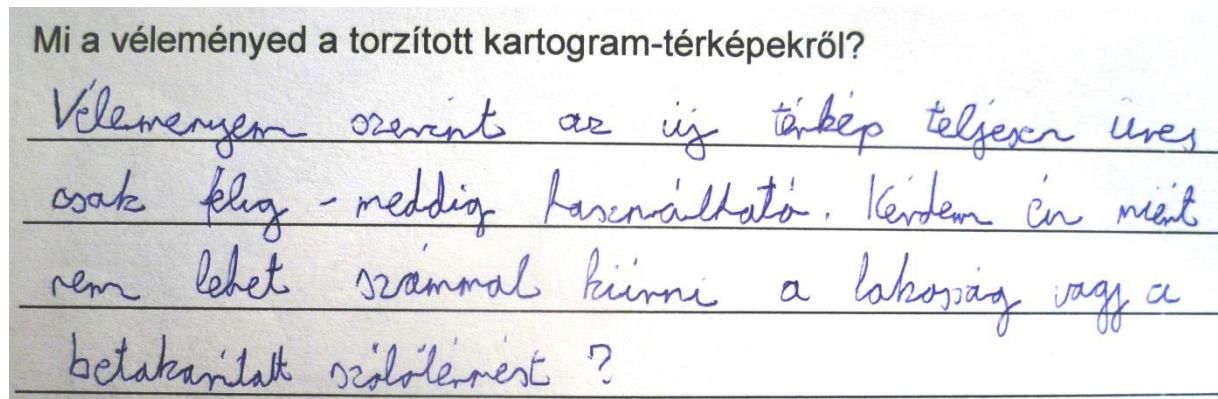 Mi a véleményed a torzított kartogram-térképekről?
Véleményem szerint az új térkép teljesen üres
csak félig - meddig használható. Kérdem én miért
nem lehet számmal kiírni a lakosság vagy a
betakarított szőlőtermést ?